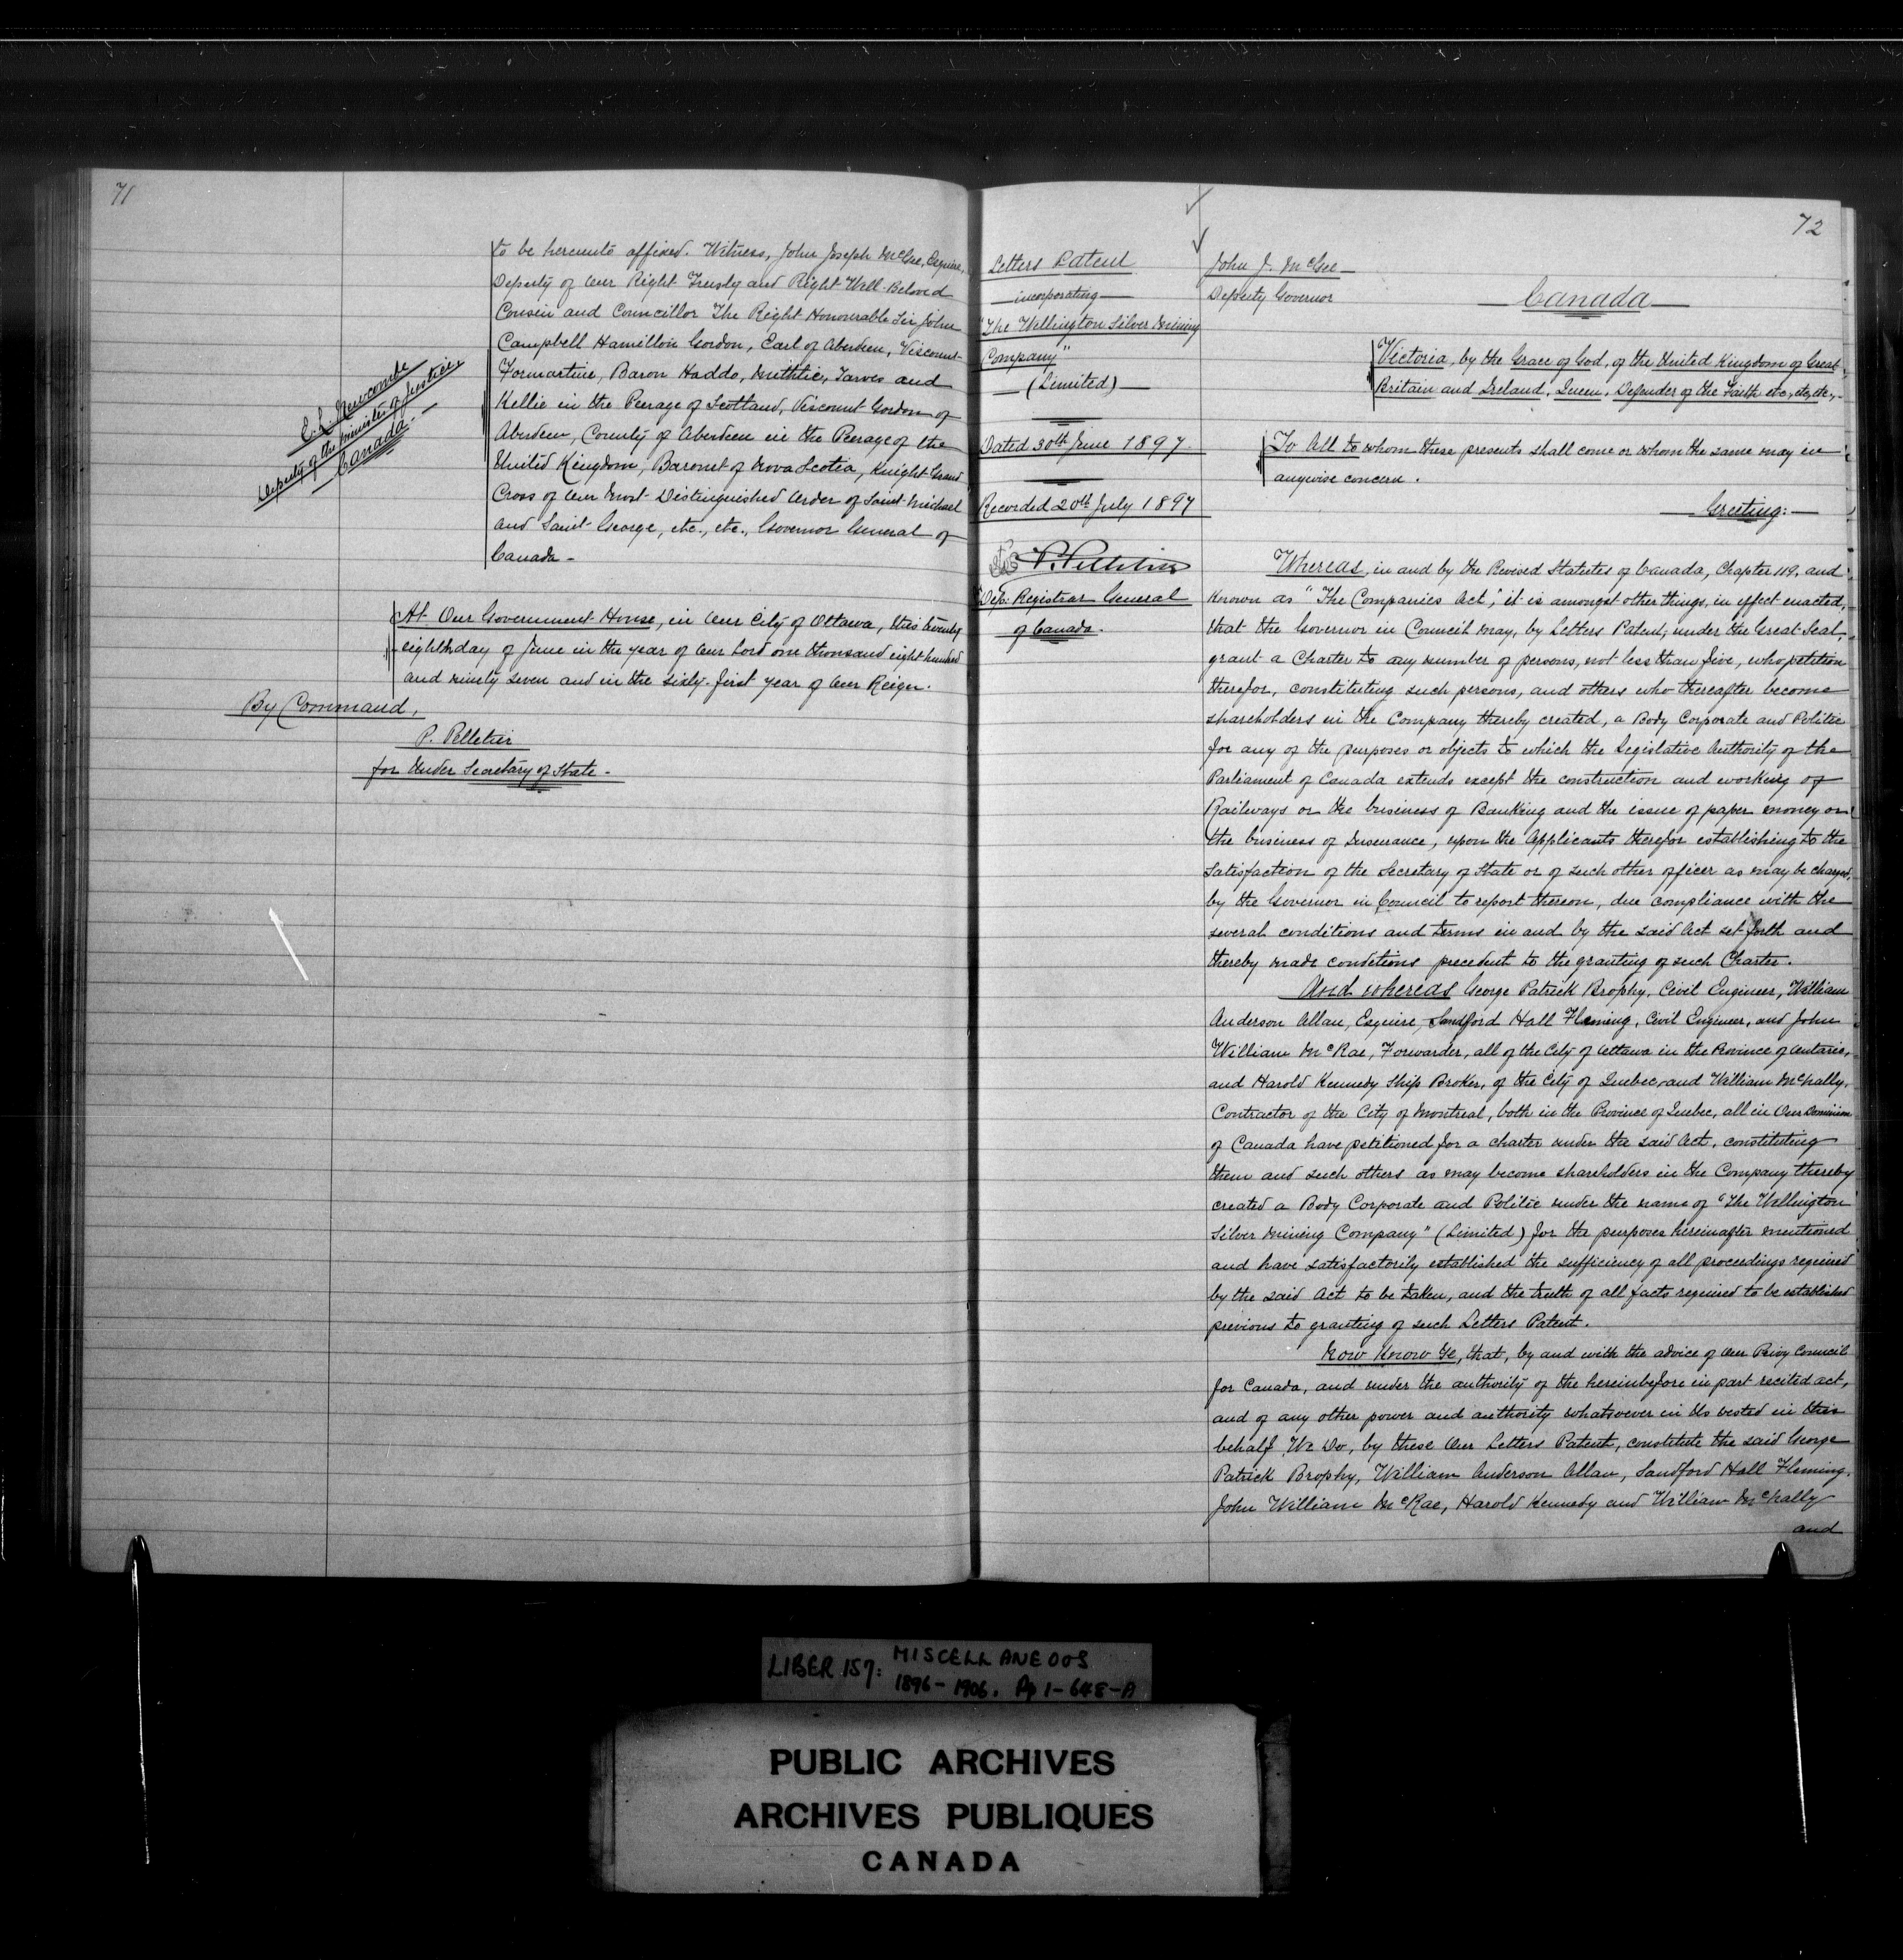 71
to be hereunto affixed. Witness, John Joseph McGee, Esquire,
Deputy of Our Right Trusty and Right Well-Beloved
Cousin and Councillor The Right Honourable Sir John
Campbell Hamilton Gordon, Earl of Aberdeen, Viscount
Formartine, Baron Haddo, Methlic, Tarves and
Kellie in the Peerage of Scotland, Viscount Gordon of
Aberdeen, County of Aberdeen in the Peerage of the
United Kingdom, Baronet of Nova Scotia, Knight Grand
Cross of Our Most Distinguished Order of Saint Michael
and Saint George, etc., etc., Governor General of
Canada -
E. L. Newcombe
Deputy of the Minister of Justice
Canada. -
At Our Government House, in Our City of Ottawa, this twenty
eighth day of June in the year of Our Lord one thousand eight hundred
and ninety seven and in the sixty-first year of Our Reign.
By Command,
P. Pelletier
for Under Secretary of State -
72
Letters Patent
- incorporating -
"The Wellington Silver Mining
Company"
- (Limited) -
Dated 30th June 1897.
Recorded 20th July 1897
P. Pelletier
Dep: Registrar General
of Canada.
John J. McGee -
Deputy Governor
- Canada -
Victoria, by the Grace of God, of the United Kingdom of Great
Britain and Ireland, Queen, Defender of the Faith etc, etc, etc, -
To All to whom these presents shall come or whom the same may in
anywise concern.
- Greeting: -
Whereas, in and by the Revised Statutes of Canada, Chapter 119, and
Known as "The Companies Act", it is amongst other things, in effect enacted,
that the Governor in Council may, by Letters Patent, under the Great Seal,
grant a Charter to any number of persons, not less than five, who petition
therefor, constituting such persons, and others who thereafter become
shareholders in the Company thereby created, a Body Corporate and Politic
for any of the purposes or objects to which the Legislative Authority of the
Parliament of Canada extends except the construction and working of
Railways or the business of Banking and the issue of paper money or
the business of Insurance, upon the Applicants therefor establishing to the
satisfaction of the Secretary of State or of such other officer as may be charged,
by the Governor in Council to report thereon, due compliance with the
several conditions and terms in and by the said Act set forth and
thereby made conditions precedent to the granting of such Charter.
And whereas George Patrick Brophy, Civil Engineer, William
Anderson Allan, Esquire, Sandford Hall Fleming, Civil Engineer, and John
William McRae, Forwarder, all of the City of Ottawa in the Province of Ontario,
and Harold Kennedy Ship Broker, of the City of Quebec, and William McNally,
Contractor of the City of Montreal, both in the Province of Quebec, all in Our Dominion
of Canada have petitioned for a charter under the said Act, constituting
them and such others as may become shareholders in the Company thereby
created a Body Corporate and Politic under the name of "The Wellington
Silver Mining Company" (Limited) for the purposes hereinafter mentioned
and have satisfactorily established the sufficiency of all proceedings required
by the said Act to be taken, and the truth of all facts required to be established
previous to granting of such Letters Patent.
Now Know Ye, that, by and with the advice of Our Privy Council
for Canada, and under the authority of the hereinbefore in part recited act,
and of any other power and authority whatsoever in Us vested in this
behalf We Do, by these Our Letters Patent, constitute the said George
Patrick Brophy, William Anderson Allan, Sandford Hall Fleming,
John William McRae, Harold Kennedy and William McNally
and
LIBER 157: MISCELLANEOUS
1896-1906. Pp 1-648-A
PUBLIC ARCHIVES
ARCHIVES PUBLIQUES
CANADA